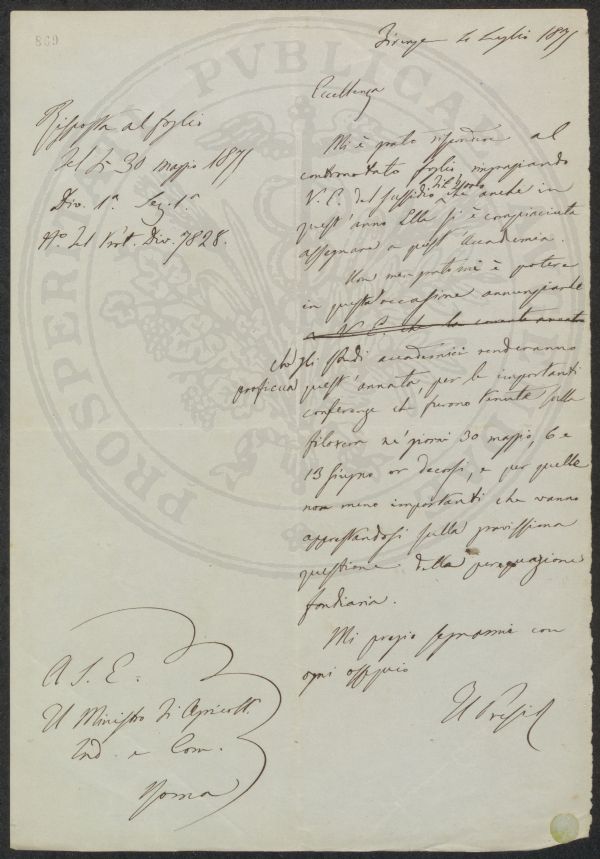 869
Firenze 10 Luglio 1875
Risposta al foglio
del dì 30 maggio 1875
Div. 1ª Sez. 1ª
N.º del Prot. Div. 7828.
Eccellenza
Mi è grato rispondere al
contronotato foglio, ringraziando
V. E. del sussidio che anche in
quest'anno Ella si è compiaciuta
assegnare a quest'Accademia.
Non men grato mi è potere
in quest'occasione annunziarle
a V. E. che la corrente annata
che gli studi accademici renderanno
proficua quest'annata, per le importanti
conferenze che furono tenute sulla
filossera ne' giorni 30 maggio, 6 e
13 Giugno or decorsi, e per quelle
non meno importanti che vanno
apprestandosi sulla
questione della perequazione
fondiaria.
Mi pregio segnarmi con
ogni ossequio
Il Presid
A S. E.
Il Ministro di Agricolt.
Ind. e Com.
Roma
PROSPERITATI PVBLICAE